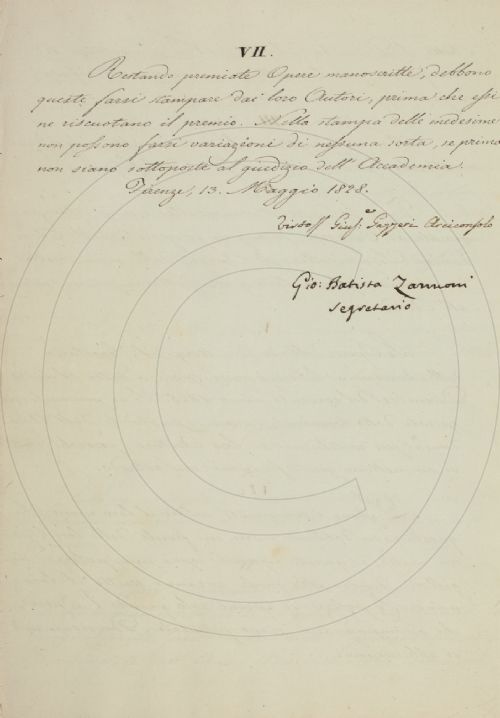 VII.
Restando premiate Opere manoscritte, debbono
queste farsi stampare dai loro Autori, prima che essi
ne riscuotano il premio. Nella stampa delle medesime
non possono farsi variazioni di nessuna sorta, se prima
non siano sottoposte al giudizio dell' Accademia.
Firenze, 13. Maggio 1828.
Gius.e Gazzeri Arciconsolo
Gio: Batista Zannoni
Segretario